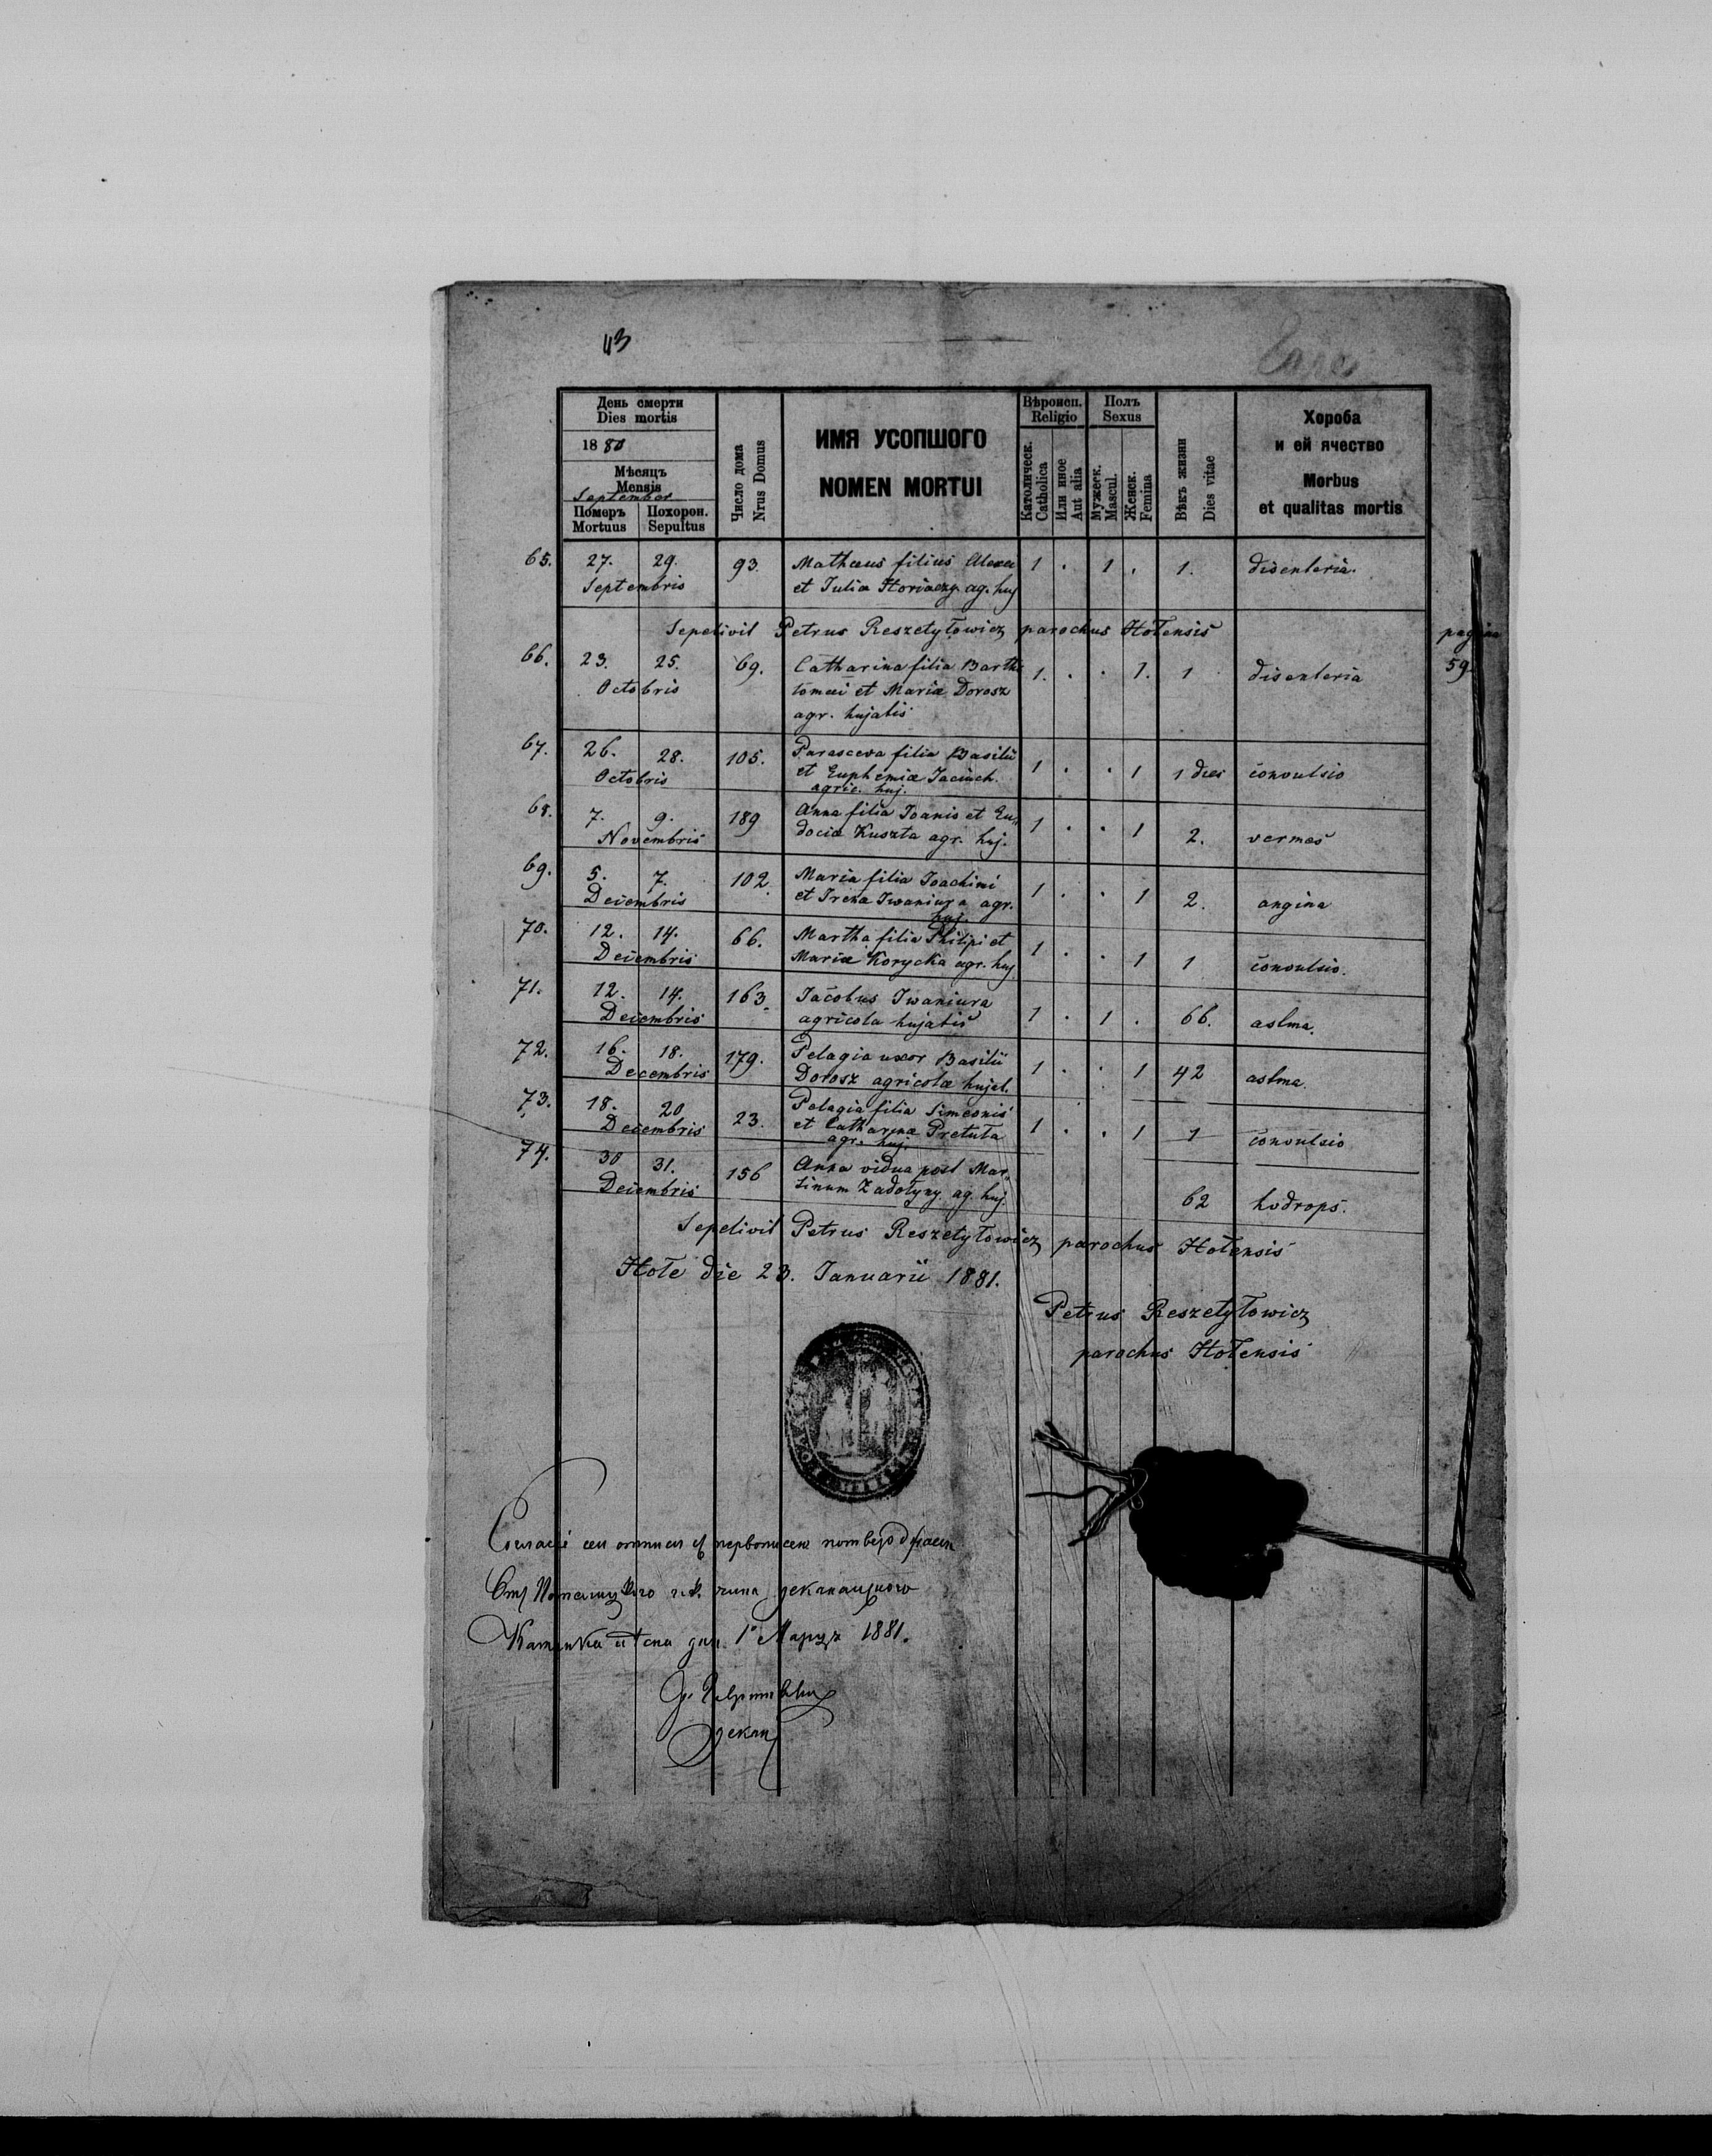 43
День смерти
Dies mortis
1880
Мѣсяцъ
Mensis
September
Померъ
Mortuus
Похорон.
Sepultus
Число дома
Nrus Domus
ИМЯ УСОПШОГО
NOMEN MORTUI
Вѣроисп.
Religio
Католическ.
Catholica
Или иное
Aut alia
Полъ
Sexus
Мужеск.
Mascul.
Женск.
Femina
Вѣкъ жизни
Dies vitae
Хороба
и ей ячество
Morbus
et qualitas mortis
65. 27. 29. 93. Mathaeus filius Alexii 1 . 1 . 1. disenteria.
Septembris et Julia Horiaczy ag. huj
Sepelivit Petrus Reszetyłowicz parochus Hołensis
pagina
59.
66. 23. 25. 69. Catharina filia Bartho 1. . . 1. 1 disenteria
Octobris lomaei et Mariæ Dorosz
agr. hujatis
67. 26. 28. 105. Parasceva filia Basilii 1 . . 1 1 dies convulsio
Octobris et Euphemiæ Jaciuch.
agric. huj.
68. 7. 9. 189 Anna filia Joanis et Eu 1 . . 1 2. vermes
Novembris dociæ Kuszta agr. huj.
69. 5. 7. 102. Maria filia Joachimi 1 . . 1 2. angina
Decembris et Irena Iwaniura agr.
huj.
70. 12. 14. 66. Martha filia Philipi et 1 . . 1 1 convulsio.
Decembris Mariæ Korycka agr. huj
71. 12. 14. 163. Jacobus Iwaniura 1 . 1 . 66. astma.
Decembris agricola hujatis
72. 16. 18. 179. Pelagia uxor Basilii 1 . . 1 42 astma.
Decembris Dorosz agricolæ hujat.
73. 18. 20 23. Pelagia filia Simeonis 1 . . 1 1 convulsio
Decembris et Catharinæ Pretuła
agr. huj.
74. 30 31. 156 Anna vidua post Mar 62 hydrops.
Decembris tinum Zadołyny. ag. huj
Sepelivit Petrus Reszetyłowicz parochus Hołensis
Hołe die 23. Januarii 1881.
Petrus Reszetyłowicz
parochus Hołensis
дня 1 Марца 1881.
декан